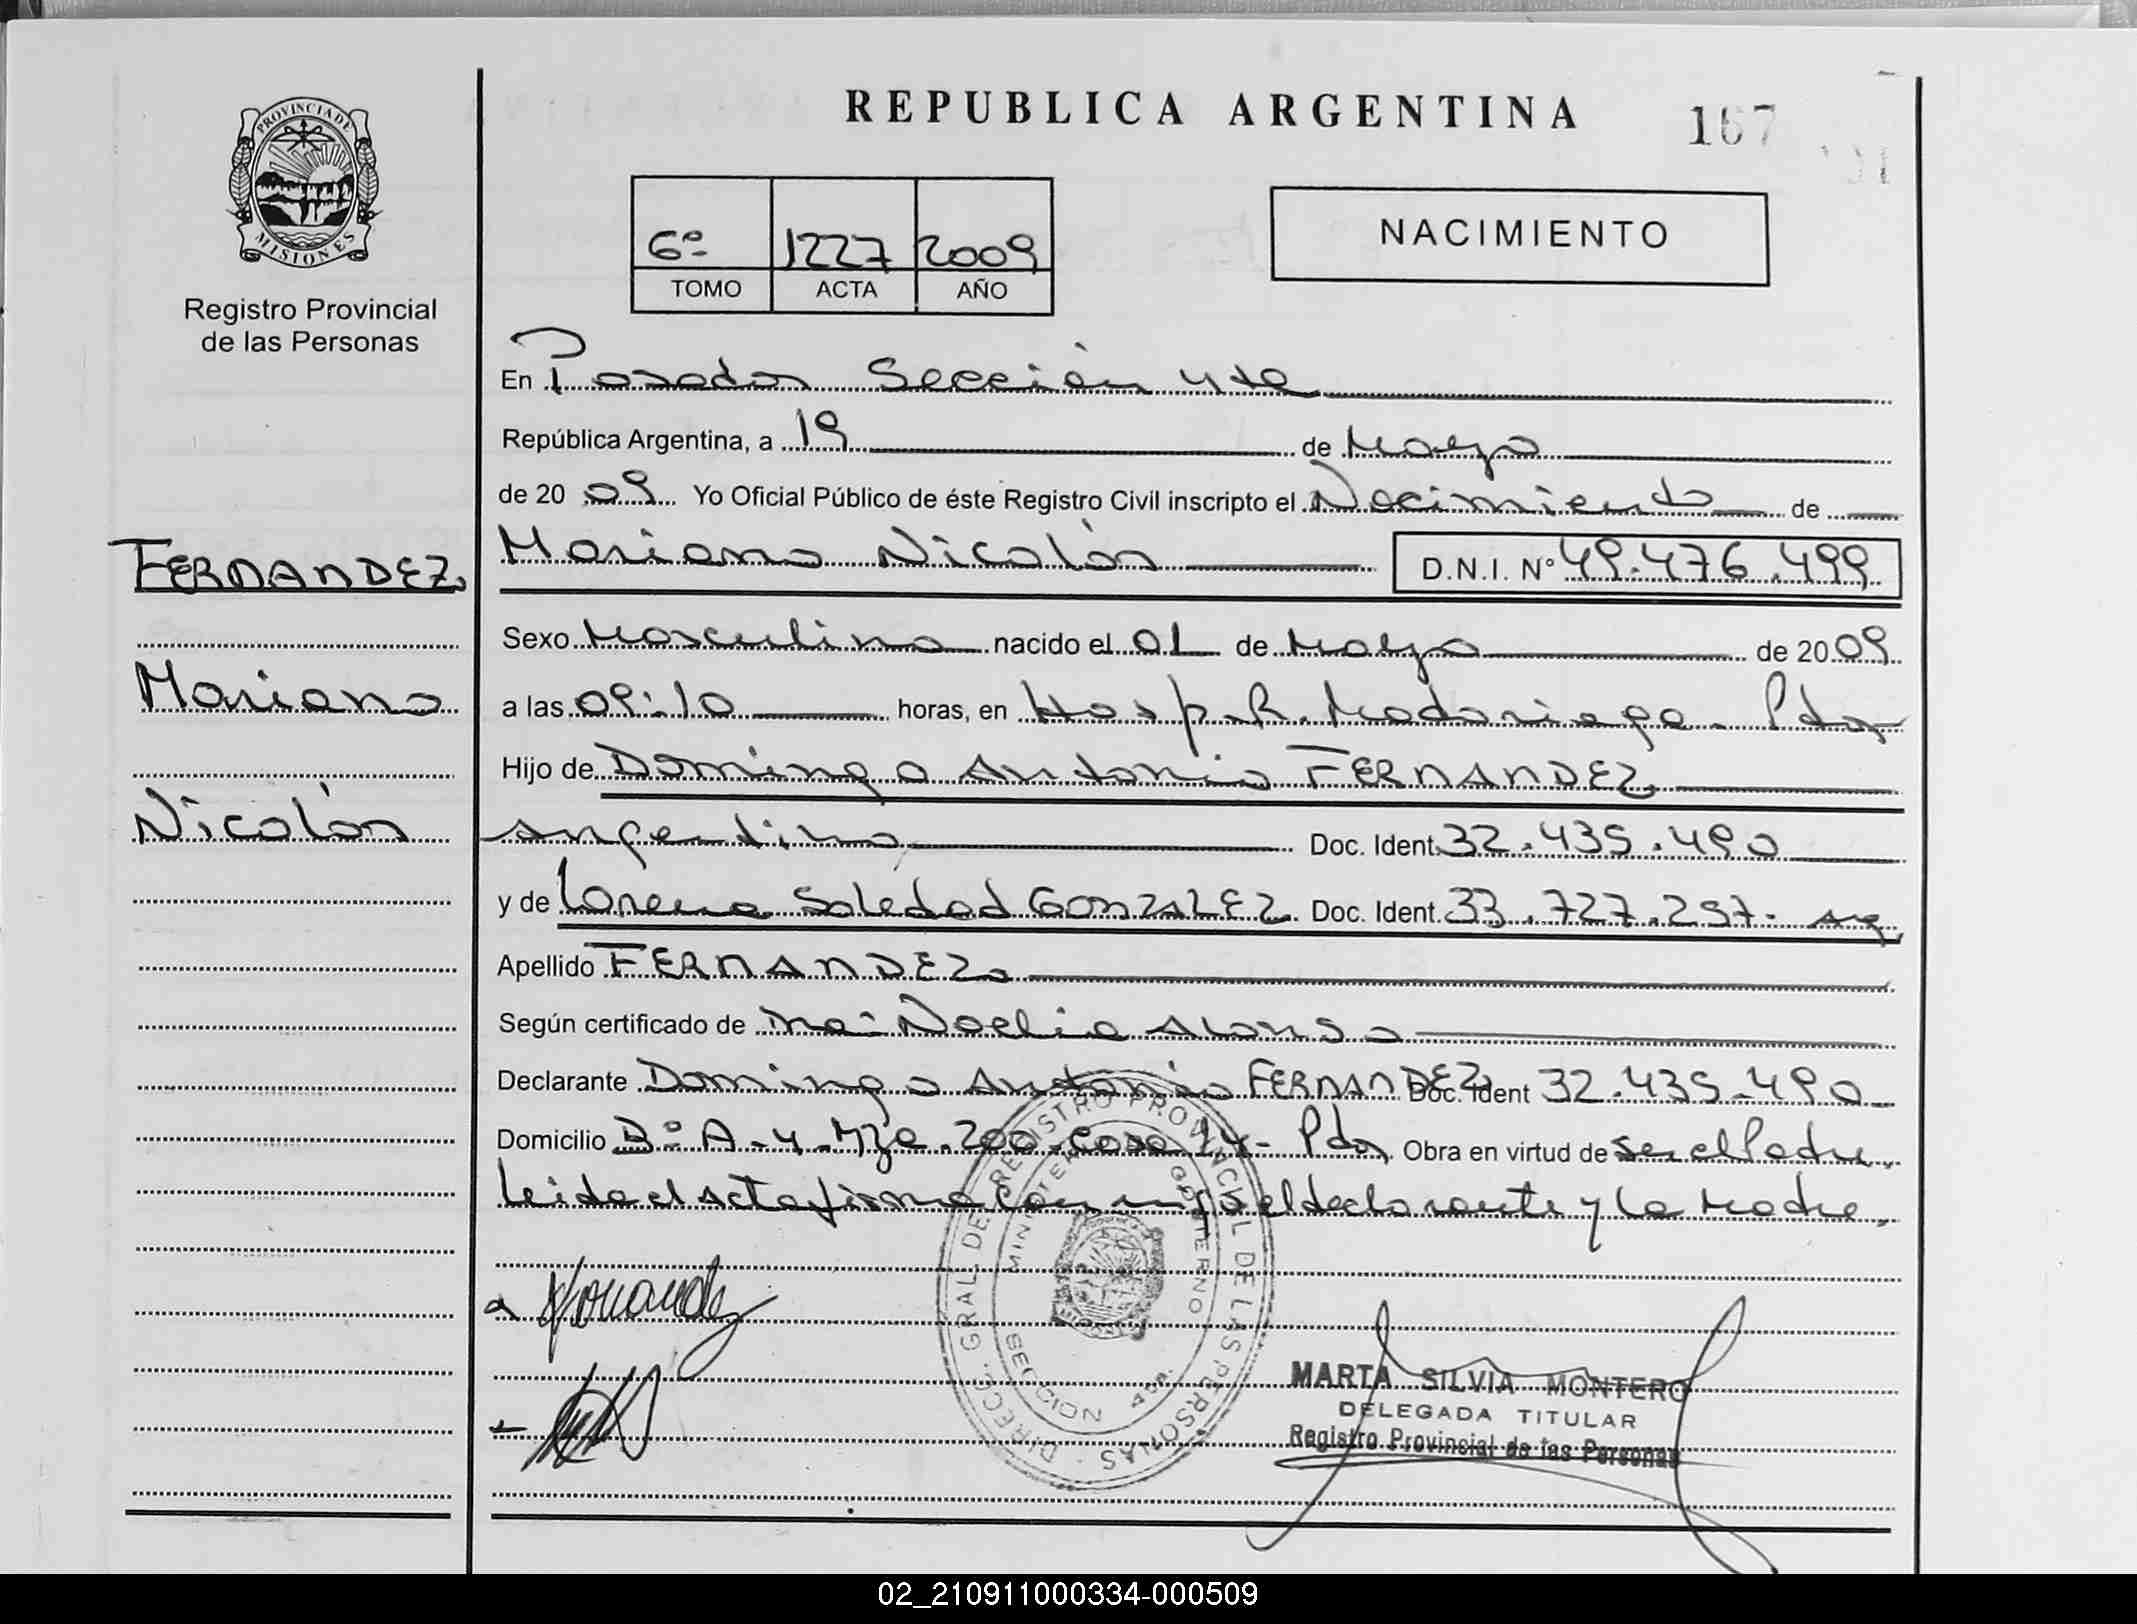 REPUBLICA ARGENTINA
167
PROVINCIA DE MISIONES
Registro Provincial
de las Personas
6º 1227 2009
TOMO ACTA AÑO
NACIMIENTO
En Posadas Sección 4ta
República Argentina, a 19 de Mayo
de 20 09 Yo Oficial Público de éste Registro Civil inscripto el Nacimiento de
Mariano Nicolás D.N.I. Nº 49.476.499
FERNANDEZ
Mariano
Nicolás
Sexo Masculino nacido el 01 de Mayo de 20 09
a las 09:10 horas, en Hosp. R. Madariaga - Pdas
Hijo de Domingo Antonio FERNANDEZ
Argentino Doc. Ident. 32.435.490
y de Lorena Soledad GONZALEZ Doc. Ident. 33.727.257- Arg
Apellido FERNANDEZ
Según certificado de Ma: Noelia Alonso
Declarante Domingo Antonio FERNANDEZ Doc. Ident 32.435.490
Domicilio Bº A-4-Mza. 200. Casa 14- Pdas Obra en virtud de Ser el Padre.
Leida el Acta firma con migo el declarante y la Madre.
DIRECC. GRAL. DE REGISTRO PROVINCIAL DE LAS PERSONAS
MINISTERIO GOBIERNO
SECCION 4ta.
MARTA SILVIA MONTERO
DELEGADA TITULAR
Registro Provincial de las Personas
02_210911000334-000509